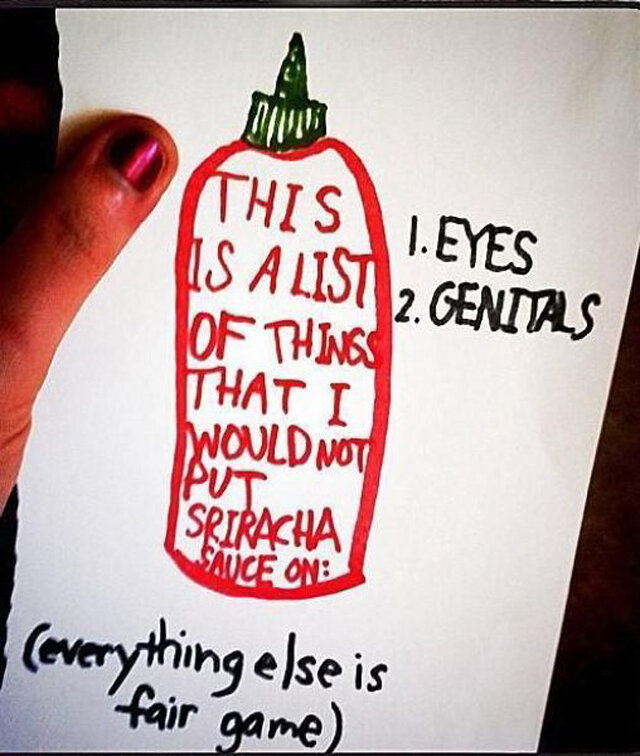 THIS
IS A LIST
OF THINGS
THAT I
WOULD NOT
PUT
SRIRACHA
SAUCE ON:
1. EYES
2. GENITALS
(everything else is
fair game)